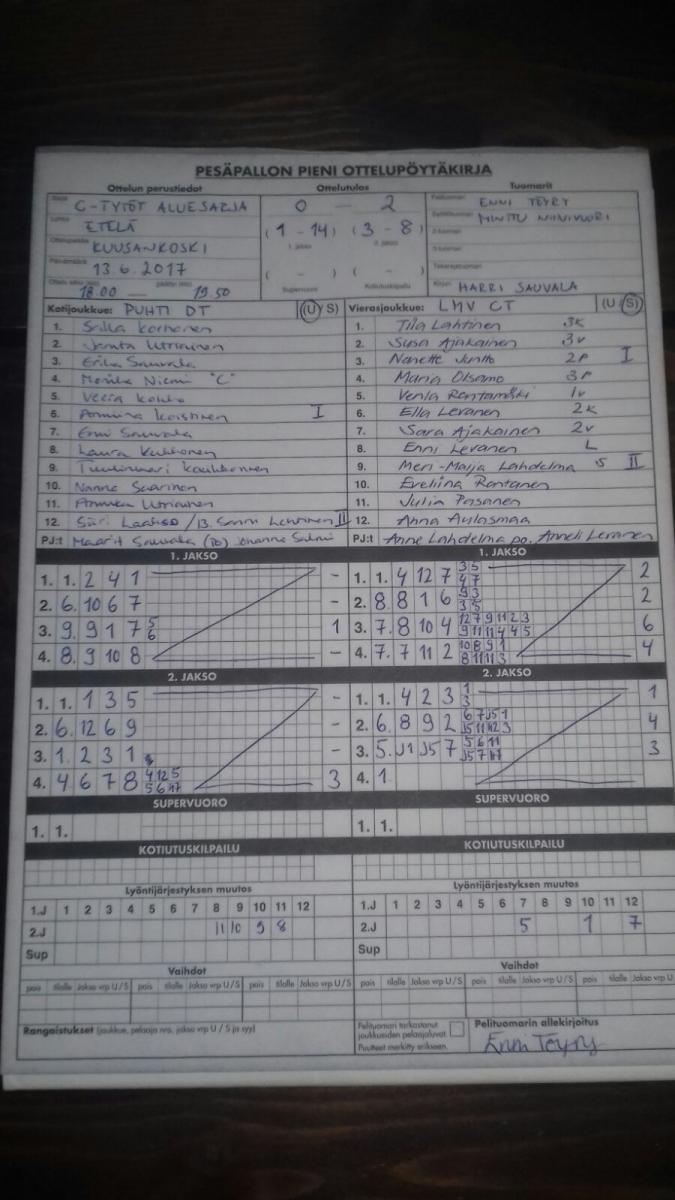 PESÄPALLON PIENI OTTELUPÖYTÄKIRJA
Ottelun perustiedot Ottelutulos Tuomarit
C-TYTÖT ALUESARJA 0 – 2 ENNI TÖYRY
ETELÄ (1 - 14) (3 - 8) MINTTU NIINIVUORI
KUUSANKOSKI 1. jakso 2. jakso
13.6.2017 ( - ) ( - )
18.00 — 19.50 Supervuoro Kotiutuskilpailu HARRI SAUVALA
Kotijoukkue: PUHTI DT (U/S) Vierasjoukkue: LMV CT (U/S)
1. Korhonen 1. Tila Lahtinen 3k
2. Utriainen 2. Susa Ajakainen 3v
3. Erika Sauvala 3. Nanette Juntto 2p I
4. Niemi "C" 4. Maria Olsamo 3p
5. Veera 5. Venla Rantamäki 1v
6. Koistinen I 6. Ella Levanen 2k
7. Enni Sauvala 7. Sara Ajakainen 2v
8. Laura Kukkonen 8. Enni Levanen L
9. 9. Meri-Maija Lahdelma S II
10. Nanna Saarinen 10. Eveliina Rantanen
11. Utriainen 11. Julia Pasanen
12. Siiri / 13. Sanni Lehtinen II 12. Anna Aulasmaa
PJ:t Maarit Sauvala Johanna Salmi PJ:t Anne Lahdelma po. Anneli Levanen
1. JAKSO 1. JAKSO
1. 1. 2 4 1 – 1. 1. 4 12 7 3 5 4 7 2
2. 6. 10 6 7 – 2. 8. 8 1 6 9 3 3 5 2
3. 9. 9 1 7 5 6 1 3. 7. 8 10 4 12 7 9 11 2 3 9 11 1 4 4 5 6
4. 8. 9 10 8 – 4. 7. 7 11 2 10 8 9 1 8 11 11 3 4
2. JAKSO 2. JAKSO
1. 1. 1 3 5 – 1. 1. 4 2 3 1 3 1
2. 6. 12 6 9 – 2. 6. 8 9 2 6 7 J5 1 J5 11 12 3 4
3. 1. 2 3 1 – 3. 5. J1 J5 7 5 6 11 J5 7 3
4. 4 6 7 8 4 12 5 5 6 3 4. 1
SUPERVUORO SUPERVUORO
1. 1. 1. 1.
KOTIUTUSKILPAILU KOTIUTUSKILPAILU
Lyöntijärjestyksen muutos Lyöntijärjestyksen muutos
1.J 1 2 3 4 5 6 7 8 9 10 11 12 1.J 1 2 3 4 5 6 7 8 9 10 11 12
2.J 11 10 9 8 2.J 5 1 7
Sup Sup
Vaihdot Vaihdot
pois tilalle Jakso vrp U/S pois tilalle Jakso vrp U/S pois tilalle Jakso vrp U/S pois tilalle Jakso vrp U/S pois tilalle Jakso vrp U/S pois tilalle Jakso vrp U
Rangaistukset (joukkue, pelaaja nro, jakso vrp U / S ja syy) Pelituomari tarkastanut joukkueiden pelaajaluvat. Pelituomarin allekirjoitus
Puutteet merkitty erikseen. Enni Töyry